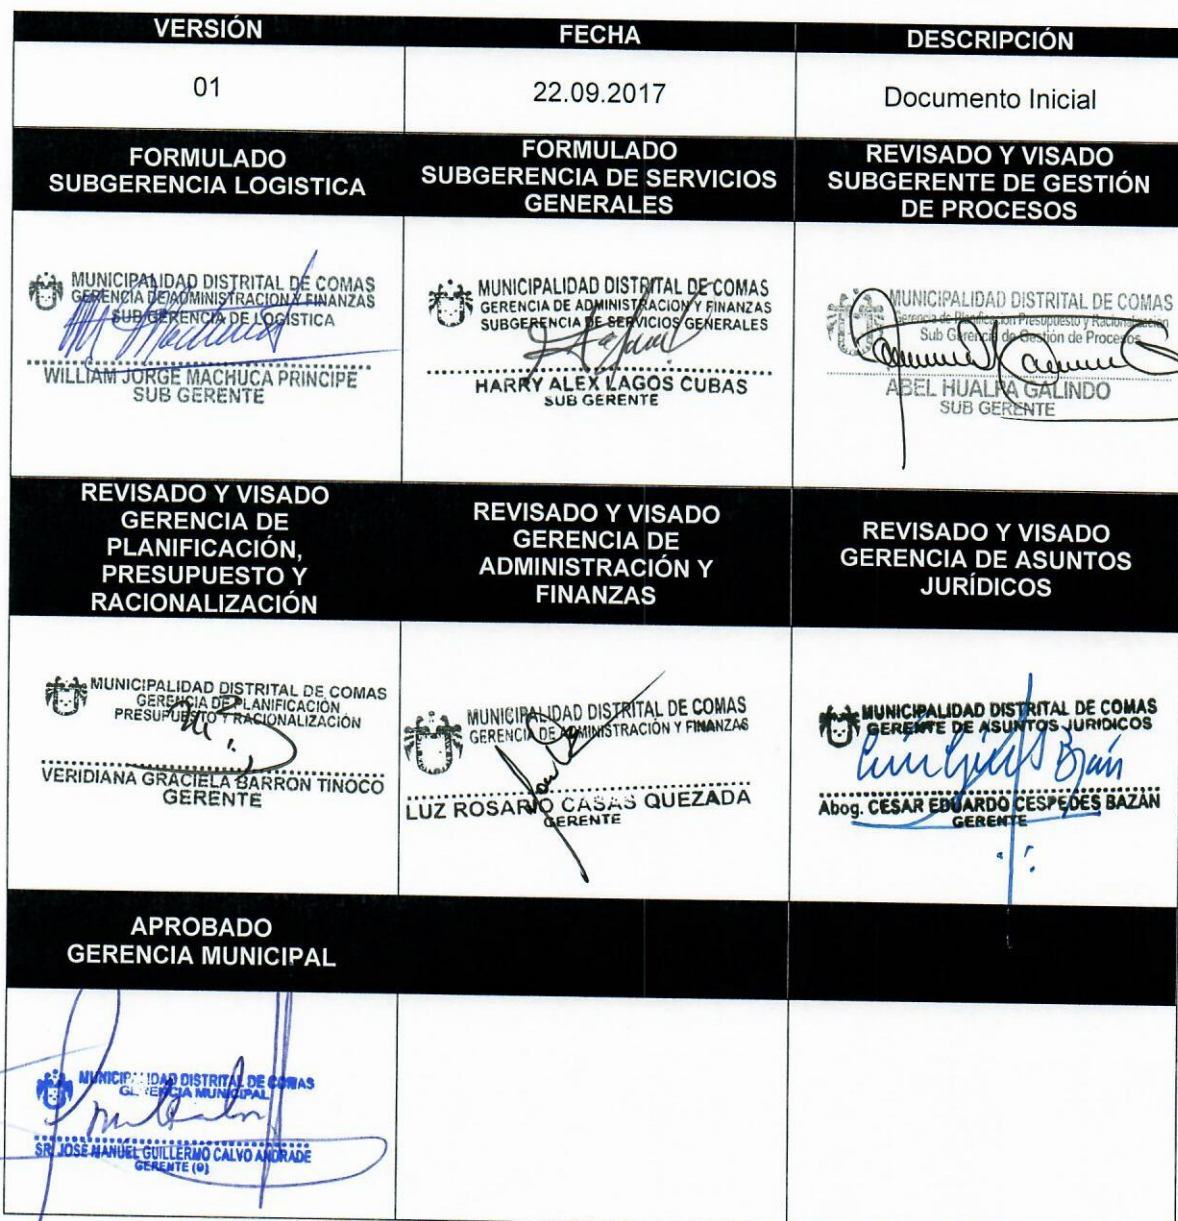 VERSIÓN
FECHA
DESCRIPCIÓN
01
22.09.2017
Documento Inicial
FORMULADO
SUBGERENCIA LOGISTICA
FORMULADO
SUBGERENCIA DE SERVICIOS
GENERALES
REVISADO Y VISADO
SUBGERENTE DE GESTIÓN
DE PROCESOS
MUNICIPALIDAD DISTRITAL DE COMAS
GERENCIA DE ADMINISTRACION Y FINANZAS
SUB GERENCIA DE LOGISTICA
WILLIAM JORGE MACHUCA PRINCIPE
SUB GERENTE
MUNICIPALIDAD DISTRITAL DE COMAS
GERENCIA DE ADMINISTRACION Y FINANZAS
SUBGERENCIA DE SERVICIOS GENERALES
HARRY ALEX LAGOS CUBAS
SUB GERENTE
MUNICIPALIDAD DISTRITAL DE COMAS
Gerencia de Planificacion Presupuesto y Racionalizacion
Sub Gerencia de Gestión de Procesos
ABEL HUALPA GALINDO
SUB GERENTE
REVISADO Y VISADO
GERENCIA DE
PLANIFICACIÓN,
PRESUPUESTO Y
RACIONALIZACIÓN
REVISADO Y VISADO
GERENCIA DE
ADMINISTRACIÓN Y
FINANZAS
REVISADO Y VISADO
GERENCIA DE ASUNTOS
JURÍDICOS
MUNICIPALIDAD DISTRITAL DE COMAS
GERENCIA DE PLANIFICACIÓN
PRESUPUESTO Y RACIONALIZACIÓN
VERIDIANA GRACIELA BARRON TINOCO
GERENTE
MUNICIPALIDAD DISTRITAL DE COMAS
GERENCIA DE ADMINISTRACIÓN Y FINANZAS
LUZ ROSARIO CASAS QUEZADA
GERENTE
MUNICIPALIDAD DISTRITAL DE COMAS
GERENTE DE ASUNTOS JURIDICOS
Abog. CESAR EDUARDO CESPEDES BAZAN
GERENTE
APROBADO
GERENCIA MUNICIPAL
MUNICIPALIDAD DISTRITAL DE COMAS
GERENCIA MUNICIPAL
SR. JOSE MANUEL GUILLERMO CALVO ANDRADE
GERENTE (e)